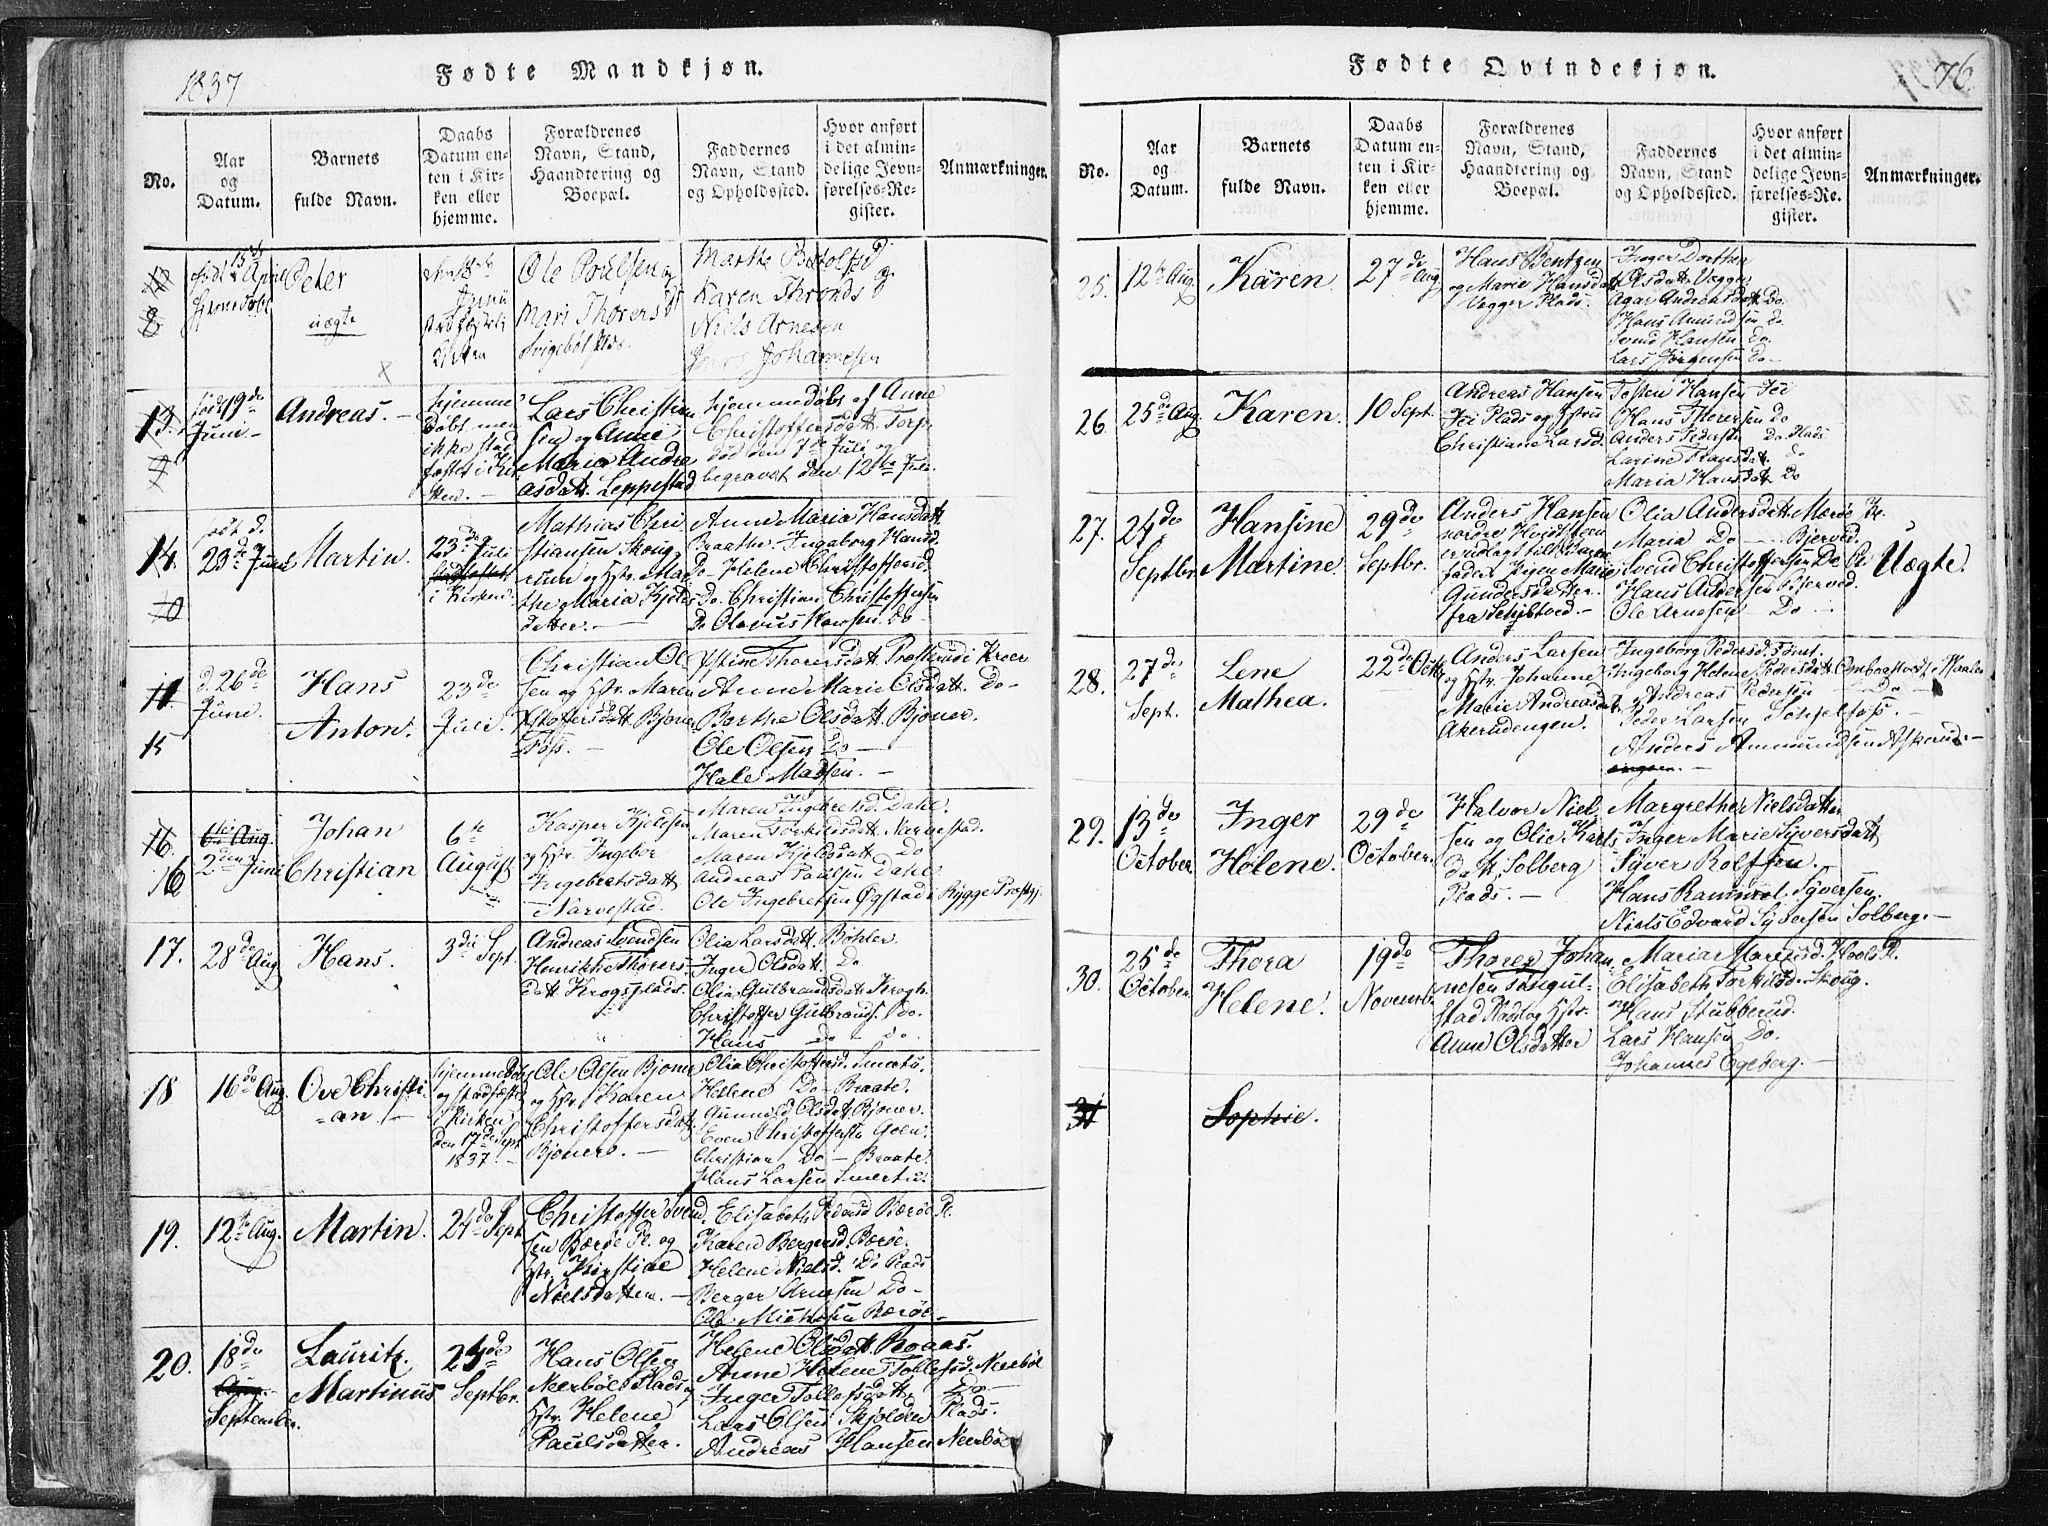 1837
Fødte Mandkjøn.
No.
Aar
og
Datum.
Barnets
fulde Navn.
Daabs
Datum en-
ten i Kir-
ken eller
hjemme.
Forældrenes
Navn, Stand,
Haandtering og
Boepæl.
Faddernes
Navn, Stand
og Opholdssted.
Hvor anført
i det almin-
delige Jevn-
førelses-Re-
gister.
Anmærkninger.
født 15de
April
Peter
uægte
Ole Poulsen og
Mari Thorersd
Karen Thronds
Niels Arnesen
Johannesen
13.
født 19de
Juni
Andreas.
hjemme
døbt men
ikke stad
fæstet i Kir
ken.
Lars Christian
sen og Anne
Maria Andre
asdatt. Leppestad
hjemmedøbt af Anne
Christoffersdatt. Torp.
død den 7de Juli og
begravet den 12te Juli.
14.
født d.
23de Juni
Martin.
23de Juli
i Kirken.
Mathias Chri
stiansen Skoug
og Hstr. Mar
the Maria Kjelds
datter.
Anne Maria Hansdatt.
Braathe. Ingeborg Hansd.
Do Helene Christoffersd.
Do. Christian Christoffersen
Do Olavus Hansen. do
15
d. 26de
Juni.
Hans
Anton.
23de
Juli.
Christian Ol
sen og Hstr. Maren
Xstoffersdatt. Bjøner
Foss.
Østine Thorersdatt. Præsterud i Kroer
Anne Marie Olsdatt. Do
Berthe Olsdatt. Bjøner.
Ole Olsen Do
Hale Madsen.
16.
16
6te Aug.
2den Juni
Johan
Christian
6te
August
Kasper Kjeldsen
og Hstr. Ingebor
Ingebretsdatt
Narvestad.
Maren Ingebretsd. Dahl.
Maren Torkildsdatt. Narvestad.
Maren Kjeldsdatt. Do
Andreas Paulsen Dahl.
Ole Ingebretsen Øgstad i Rygge Præstgj.
17.
28de Aug
Hans.
3die Sept.
Andreas Svendsen
Henrikke Thorers-
datt. Krogsplads.
Olia Larsdatt. Bøhler.
Inger Olsdatt. Do
Olia Gulbrandsdatt. Krogh.
Christoffer Gulbrands. Do.
Hans Do Do
18
16de Aug.
Ove Christi-
-an.
Hjemmedøbt
og stadfæstet
i Kirken
den 17de Sept.
1837.
Ole Olsen Bjøner
og Hstr. Karen
Christoffersdatt.
Bjøners.
Olia Christoffersd. Smertu.
Helene Do Braate.
Gunnild Olsdatt. Bjøner.
Even Christoffersen Goen.
Christian Do Braate.
Hans Larsen Smertu.
19.
12te Aug.
Martin.
24de Sept.
Christoffer Svend
sen Bærøe Pl. og
Hstr. Kirstine
Nielsdatter.
Elisabeth Pedersd Bærøe Pl.
Karen Bergersd. Bærøe.
Helene Nielsd. Do Plads
Berger Arnesen Do
Ole Mickelsen Bærøe
20.
18de
Aug.
September.
Lauritz
Martinus
24de
Septbr.
Hans Olsen
Neerbøl Plads og
Hstr. Helene
Paulsdatter.
Helene Olsdatt. Braas.
Anne Helene Tollefsd. Neerbøl
Inger Tollefsdatt. Do
Lars Olsen Skjolden Plads.
Andreas Hansen Neerbøl
Fødte Qvindekjøn.
76.
No.
Aar
og
Datum.
Barnets
fulde Navn.
Daabs
Datum en-
ten i Kir-
ken eller
hjemme.
Forældrenes
Navn, Stand,
Haandtering og
Boepæl.
Faddernes
Navn, Stand
og Opholdssted.
Hvor anført
i det almin-
delige Jevn-
førelses-Re-
gister.
Anmærkninger.
25.
12te Aug.
Karen
27de Aug.
Hans Bentzen
og Marie Hansdatt.
Vægger Plads.
Inger Dorthea
Olsdatt. Vægger
Agar Andreasdatt. Do.
Hans Amundsen do
Svend Hansen do.
Lars Jørgensen Do
26.
25de Aug.
Karen.
10 Sept.
Andreas Hansen
Fei Plads og Hstru
Christiane Larsd.
Tosten Hansen Fei
Hans Thorersen Do
Anders Pedersen Do. Plads
Larine Hansdatt. do
Maria Hansdatt. Do
27.
24de
Septbr.
Hansine
Martine.
29de
Septbr.
Anders Hansen
nordre Hvidsteen
er udlagt til Barne
fader. Pigen Marie
Gundersdatter.
fra Schibstved.
Olia Andersdatt. Mærøe Pl.
Maria Do Bjerved.
Svend Christoffersen Do Pl
Hans Andersen Bjerved.
Ole Arnesen Do
Uægte.
28.
27de
Sept.
Lene
Mathea.
22de Octb
Anders Larsen
og Hstr. Johanne
Marie Andreasdat.
Akerudengen.
Ingeborg Pedersd. Tomt.
Ingeborg Helene Pedersdatt.
Andreas Pedersen Do
Peder Larsen
Anders Ammundsen Askerud.
engen.
29.
13de
October.
Inger
Helene.
29de
October.
Halvor Niel
sen og Olie Karls
datt. Solberg
Plads.
Margrethe Nielsdatter
Inger Marie Syversdatt
Syver Rolfsen.
Hans Rammel. Syversen.
Niels Edvard Syversen Solberg.
30.
25de
October.
Thora
Helene.
19de
Novemb.
Thorer Johan
nesen Tangul-
stad Plads og Hstr.
Anne Olsdatter
Maria Mariusd. Hools Pl.
Elisabeth Torkildsd. Skoug.
Hans Stubberud.
Lars Hansen Do.
Johannes Egeberg.
31
Sophie.